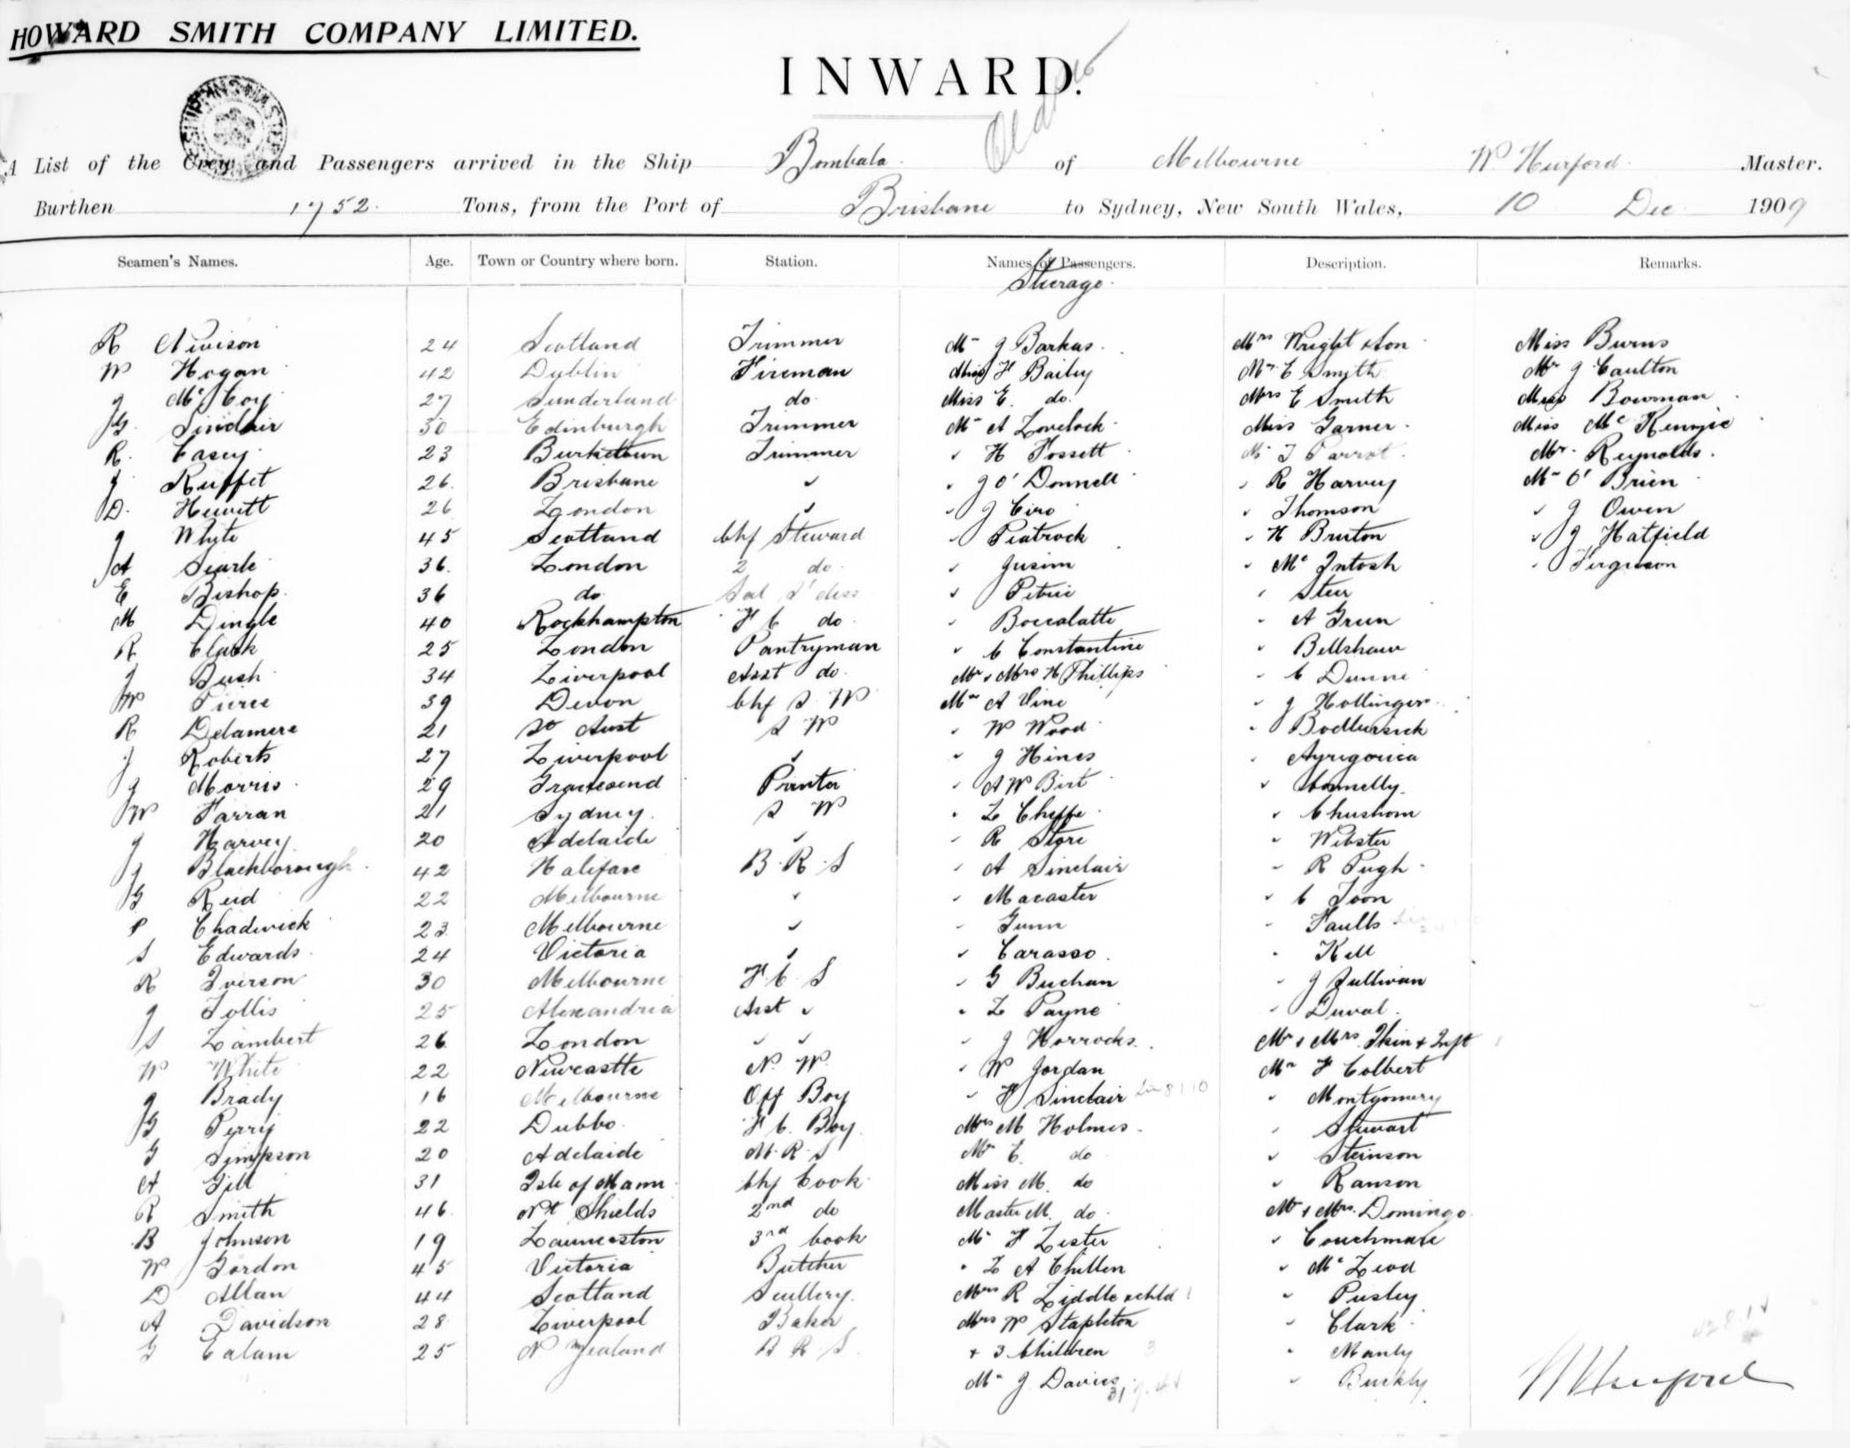 HOWARD SMITH COMPANY LIMITED.
INWARD.
A List of the Crew and Passengers arrived in the Ship Bombala of Melbourne W Hurford Master.
Burthen 1752 Tons, from the Port of Brisbane to Sydney, New South Wales, 10 Dec 1909
Seamen's Names. Age. Town or Country where born. Station. Names of Passengers. Description. Remarks.
Steerage
R Nivison 24 Scotland Trimmer Mr J Barkas Mrs Wright & Son Miss Burns
W Hogan 42 Dublin Fireman Miss F Bailey Mr E Smyth Mr J Caulton
J McCoy 27 Sunderland do Miss E. do. Mrs E Smith Miss Bowman
G Sinclair 30 Edinburgh Trimmer Mr A Lovelock Miss Garner Miss McKenzie
R. Casey 23 Burketown Trimmer " H Fossett Mr T Parrot Mr. Reynolds
J Ruffet 26 Brisbane " " J O'Donnell " R Harvey Mr O'Brien
D. Hewitt 26 London " " J Ciro " Thomson " J Owen
J Whyte 45 Scotland Chf Steward " Peatrock " H Bruton " J Hatfield
A Searle 36 London 2 do " Jusim " McIntosh " Ferguson
E Bishop 36 do " Petrie " Steer
M Dingle 40 Rockhampton F C do " Boccalatte " A Green
R Clark 25 London Pantryman " C Constantine " Bellshaw
J Bush 34 Liverpool Asst do Mr & Mrs H Phillips " C Dunne
W Pierce 39 Devon Chf S W Mr A Vine " J Hollinger
R Delamere 21 So Aust S W " W Wood "
J Roberts 27 Liverpool " " J Hines "
J Morris 29 Gravesend Printer " A W Birt " Connelly
W Farran 21 Sydney S W " L Cheffe " Chushom
J Harvey 20 Adelaide " " R Store " Webster
J Blackborough 42 Halifax B.R.S " A Sinclair " R Pugh
G Reid 22 Melbourne " " Macaster " C Toon
P Chadwick 23 Melbourne " " Gunn " Faulls
S Edwards 24 Victoria " " Carasso " Kell
R Iverson 30 Melbourne F.C.S " G Buchan " J Sullivan
J Tollis 25 Alexandria Asst " " L Payne " Duval
S Lambert 26 London " " " J Horrocks Mr & Mrs & Inft
W White 22 Newcastle N. W. " W Jordan Mr F Colbert
J Brady 16 Melbourne Off Boy " F Sinclair " Montgomery
G Perry 22 Dubbo F C. Boy Mrs M Holmes " Stewart
G Simpson 20 Adelaide M.R.S Mr C. do " Steinson
A Gill 31 Isle of Mann Chf Cook Miss M. do " Ranson
R Smith 46 Nth Shields 2nd do Master M. do Mr & Mrs. Domingo
B Johnson 19 Launceston 3rd Cook Mr F Lester " Couchman
W Gordon 45 Victoria Butcher " L A Chillen " McLeod
D Allan 44 Scotland Scullery Mrs R Liddle & chld " Pusley
A Davidson 28 Liverpool Baker Mrs W Stapleton " Clark
G Ealam 25 N Zealand B R.S + 3 Children " Manly
Mr J Davies " Buckly
W Hurford